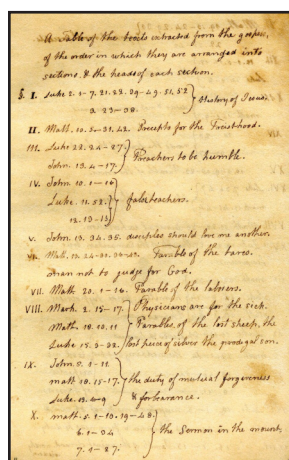 A Table of the texts extracted from the gospels,
of the order in which they are arranged into
sections, & the heads of each section.
§. I. Luke 2. 1-7. 21. 22. 39-49. 51. 52 } History of Jesus.
3. 23-38.
II. Matt. 10. 5-31. 42. Precepts for the Priesthood.
III. Luke 22. 24-27. } Preachers to be humble.
John. 13. 4-17.
IV. John. 10. 1-16
Luke. 11. 52. } false teachers.
12. 13-15
V. John. 13. 34. 35. disciples should love one another.
VI. Matt. 13. 24-30. 36-43. Parable of the tares.
man not to judge for God.
VII. Matt. 20. 1-16. Parable of the laborers.
VIII. Mark. 2. 15-17. } Physicians are for the sick.
Matt. 18. 10. 11 } Parables of the lost sheep, the
Luke. 15. 3-32. } lost piece of silver the prodigal son.
IX. John. 8. 1-11.
matt. 18. 15-17. } the duty of mutual forgiveness
Luke. & forbearance.
X. matt. 5. 1-10. 19-48. }
6. 1-34 } the Sermon in the mount.
7. 1-27.